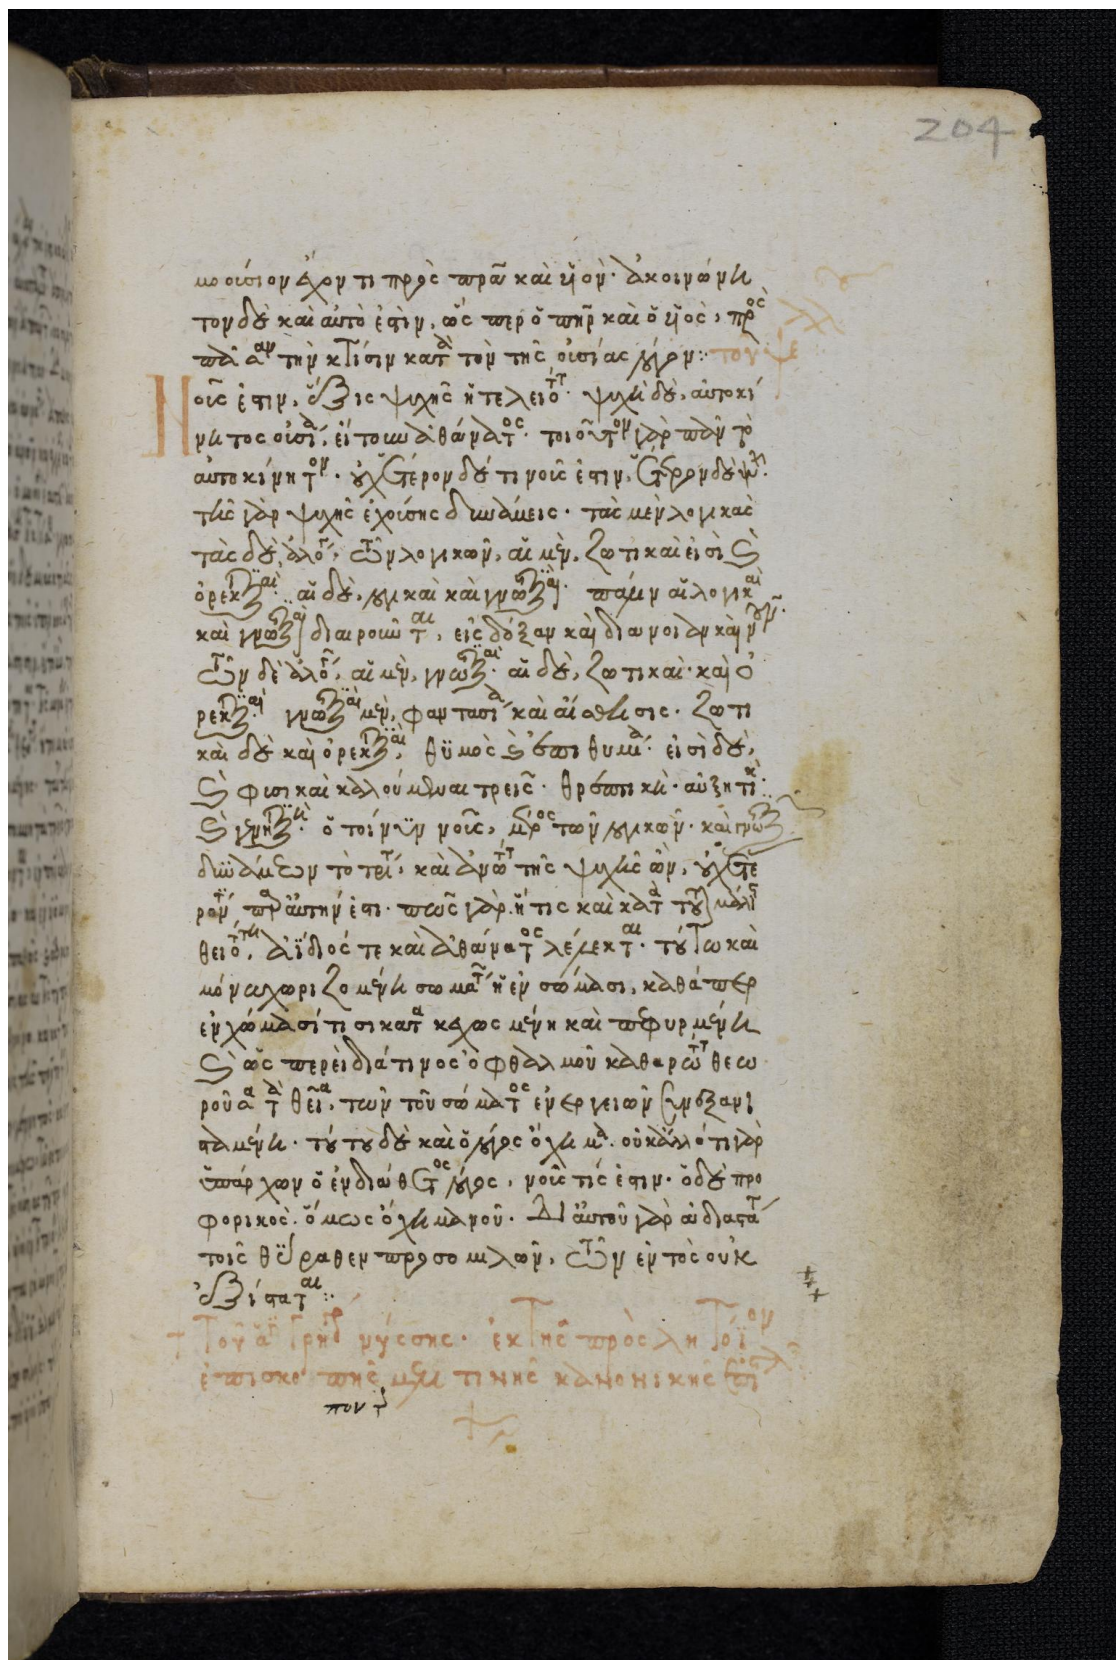 μοούσιον ἔχον τι πρὸς πρα καὶ υἱόν· ἀκοινώνη
τον δὲ καὶ αὐτὸ ἐστὶν, ὥσπερ ὁ πηρ καὶ ὁ υἱὸς, πρὸς
πᾶσαν τὴν κτίσιν κατὰ τὸν τῆς οὐσίας λόγον: τοῦ
Νοῦς ἐστιν, ἕξις ψυχῆς ἡ τελειότατη· ψυχὴ δὲ, αὐτοκί
νητος οὐσία, εἴτουν ἀθάνατος· τοιοῦτον γὰρ πᾶν τὸ
αὐτοκίνητον· οὐχ ἕτερον δέ τι νοῦς ἐστιν, ἕτερον δὲ ψυχή·
τῆς γὰρ ψυχῆς ἐχούσης δυνάμεις· τὰς μὲν λογικὰς
τὰς δὲ, ἀλόγους, τῶν λογικῶν, αἱ μὲν, ζωτικαὶ εἰσὶ καὶ
ὀρεκτικαί· αἱ δὲ, λογικαὶ καὶ γνωστικαὶ· πάλιν αἱ λογικαὶ
καὶ γνωστικαὶ διαιροῦνται, εἰς δόξαν καὶ διάνοιαν καὶ νοῦν·
τῶν δὲ ἀλόγων, αἱ μὲν, γνωστικαί· αἱ δὲ, ζωτικαὶ· καὶ ὀ
ρεκτικαί· γνωστικαὶ μὲν, φαντασία καὶ αἴσθησις. ζωτι
καὶ δὲ καὶ ὀρεκτικαὶ, θυμὸς καὶ ἐπιθυμία· εἰσὶ δὲ,
καὶ φυσικαὶ καλούμεναι τρεῖς· θρεπτικὴ· αὐξητικὴ·
καὶ γεννητικὴ· ὁ τοίνυν νοῦς, μέρος τῶν λογικῶν· καὶ γνωστικῶν
δυνάμεων τὸ τρίτον, καὶ ἀνώτατον τῆς ψυχῆς ὢν, οὐχ ἕτε
ρόν τι παρ αὐτήν ἐστι· πῶς γὰρ. ἥτις καὶ κατὰ τοῦτο μάλιστα
θειότατη, ἀΐδιός τε καὶ ἀθάνατος λέλεκται. τούτω καὶ
μόνω χωριζομένη σώματος ἢ ἐν σώμασι, καθάπερ
ἐν χώμασί τισι κατακεχωσμένη καὶ πεφυρμένη
καὶ ὥσπερεὶ διά τινος ὀφθαλμοῦ καθαρωτάτου θεω
ροῦσα τὰ θεῖα, τῶν τοῦ σώματος ἐνεργειῶν συνεξανι
σταμένη. τούτου δὲ καὶ ὁ λόγος ὄχημα. οὐκ ἄλλό τι γὰρ
ὑπάρχων ὁ ἐνδιάθετος λόγος, νοῦς τίς ἐστιν. ὁ δὲ προ
φορικὸς. ὅμως ὄχημα νοῦ. δι αὐτοῦ γὰρ ἀδιαστάτως
τοῖς θύραθεν προσομιλῶν, τῶν ἐντὸς οὐκ
ἐξίσταται:
Τοῦ ἁγ Γρηγ νύσσης. ἐκ τῆς πρὸς λητόϊον
ἐπισκο πῆς μελιτινῆς κανονικῆς